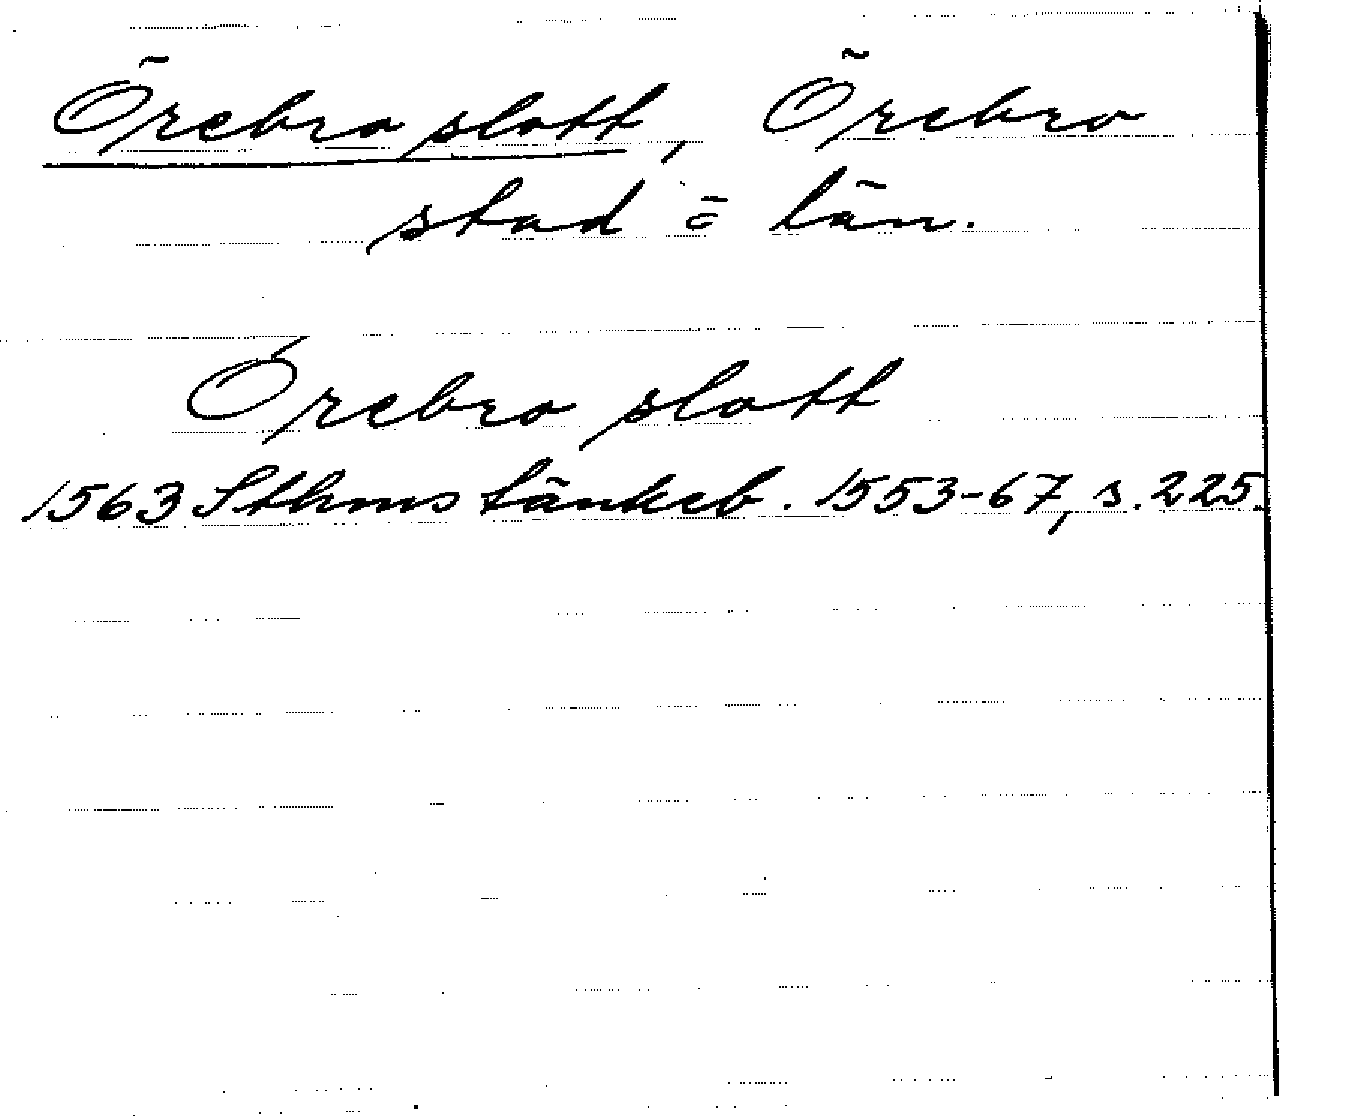 Örebro slott, Örebro
stad o län.
Örebro slott
1563 Sthms tänkeb. 1553-67, s. 225.